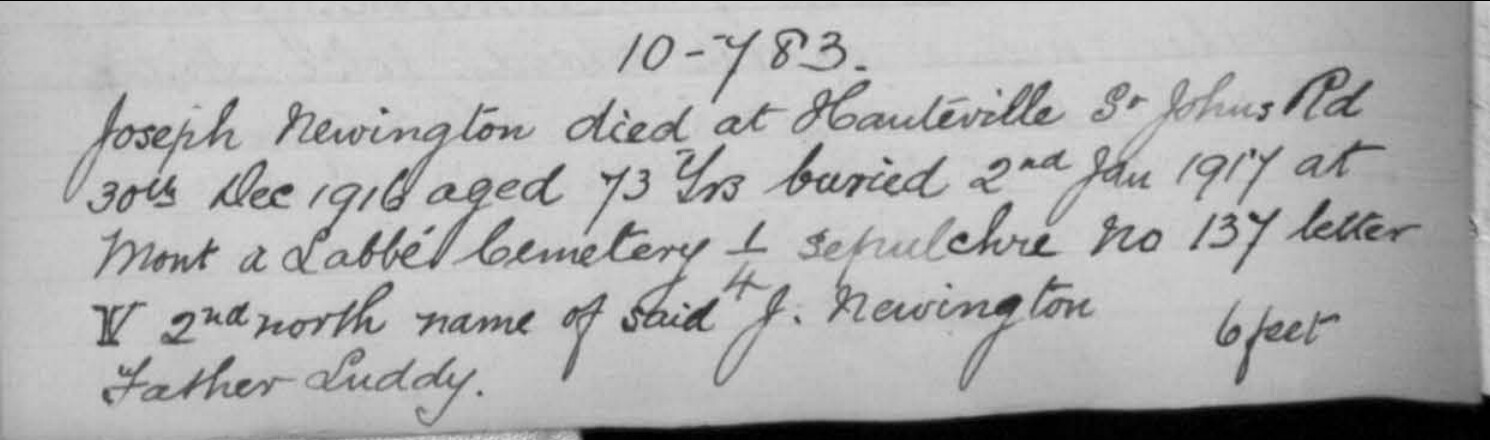 10-783.
Joseph Newington died at Hautéville St Johns Rd
30th Dec 1916 aged 73 Yrs buried 2nd Jan 1917 at
Mont a Labbé Cemetery 1/4 sepulchre No 137 letter
V 2nd north name of said J. Newington
6 feet
Father Luddy.